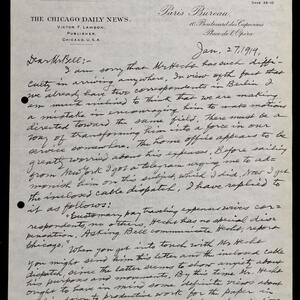 THE CHICAGO DAILY NEWS.
VICTOR F. LAWSON,
PUBLISHER,
CHICAGO, U.S.A.
Paris Bureau,
10 Boulevard des Capucines
Place de l'Opéra
Jan. 27, 1919.
Dear Mr Bell:
I am sorry that Mr Hecht has such diffi-
culty in arriving anywhere. In view of the fact that
we already have two correspondents in Berlin I
am much inclined to think that we are making
a mistake in encouraging him to make motions
directed toward the same field. There must be a
way of transforming him into a force in our
service somewhere. The home office appears to be
greatly worried about his expenses. Before sailing
from New York I got a telegram urging me to ad-
monish him on this subject, which I did. Now I get
the inclosed cable dispatch. I have replied to
it as follows:
"Customary pay traveling expenses wives cor-
respondents no others. Hecht has no special dis-
pensation. Asking Bell communicate Hecht, report
Chicago."
When you get into touch with Mr Hecht
you might send him this letter and the inclosed cable
dispatch, since the latter seems to show anxiety about
his purposes and movements. By this time Mr. Hecht
ought to have in mind some definite views about
productive work for the paper in